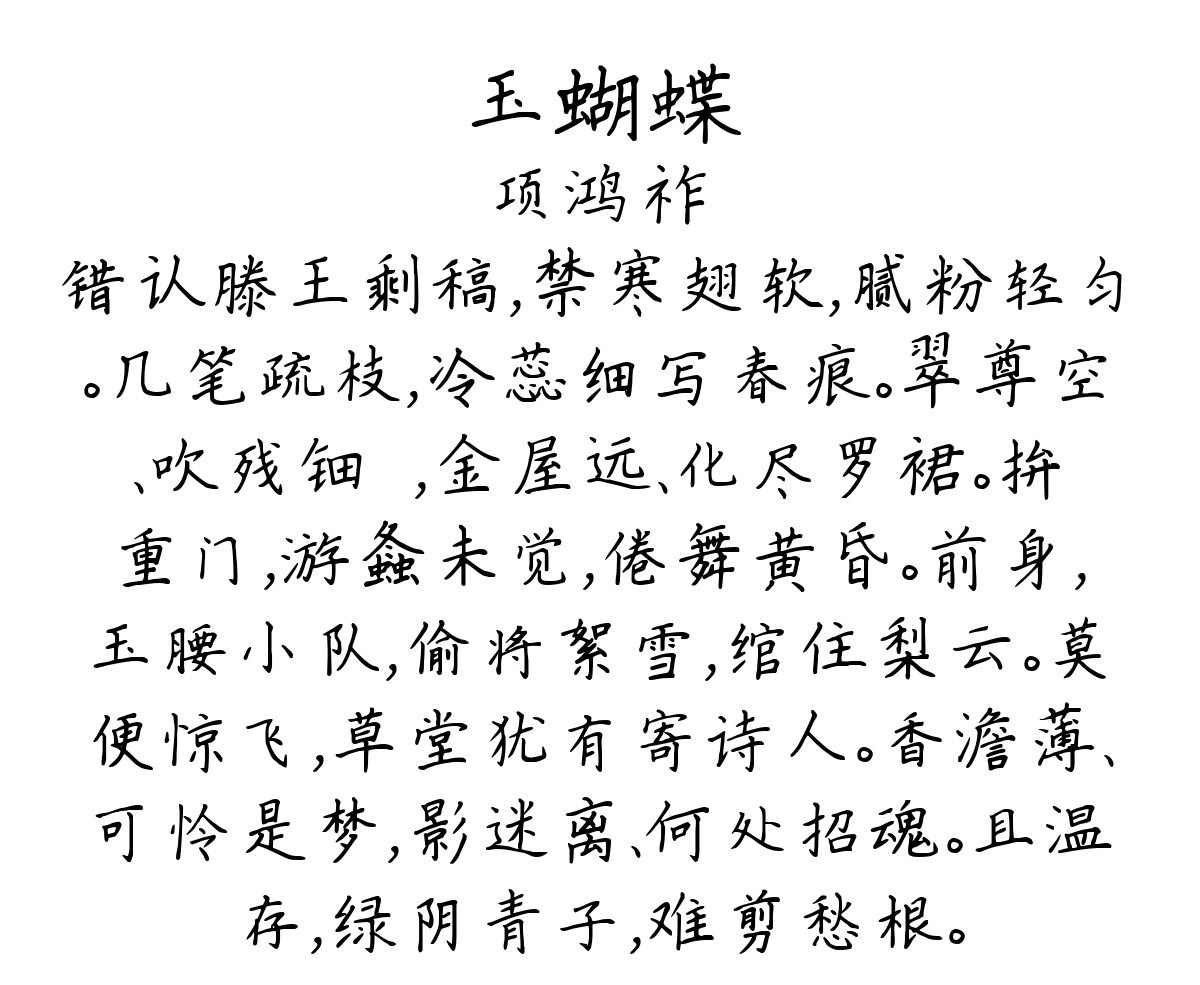 玉蝴蝶
项鸿祚
错认滕王剩稿,禁寒翅软,腻粉轻匀
。几笔疏枝,冷蕊细写春痕。翠尊空
、吹残钿 ,金屋远、化尽罗裙。拚
重门,游螽未觉,倦舞黄昏。前身,
玉腰小队,偷将絮雪,绾住梨云。莫
便惊飞,草堂犹有寄诗人。香澹薄、
可怜是梦,影迷离、何处招魂。且温
存,绿阴青子,难剪愁根。